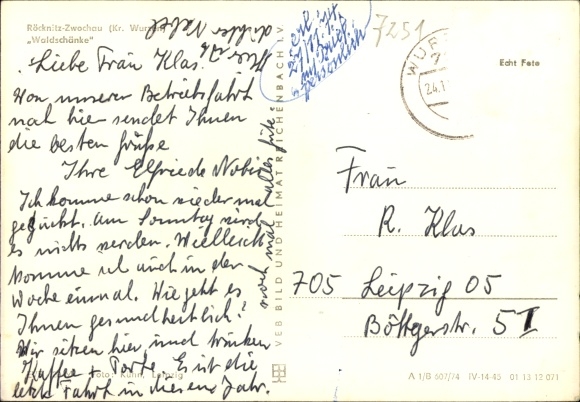 Röcknitz-Zwochau (Kr. Wurzen)
„Waldschänke"
Liebe Frau Klas!
Von unserer Betriebsfahrt
nach hier sendet Ihnen
die besten Grüße
Ihre Elfriede
Ich komme schon wieder mal
. Am Sonntag wird
es nichts werden. Vielleicht
komme ich auch in der
Woche einmal. Wie geht es
Ihnen gesundheitlich?
Wir sitzen hier und trinken
Kaffee + Torte. Es ist die
letzte Fahrt in diesem Jahr.
noch mal alles Gute
Foto: Kühn, Leipzig
VEB BILD UND HEIMAT REICHENBACH I. V.
persönlich
7251
WUR
24.1
Echt Foto
Frau
R. Klas
705 Leipzig 05
Böttgerstr. 5 I
A 1/B 607/74 IV-14-45 01 13 12 071